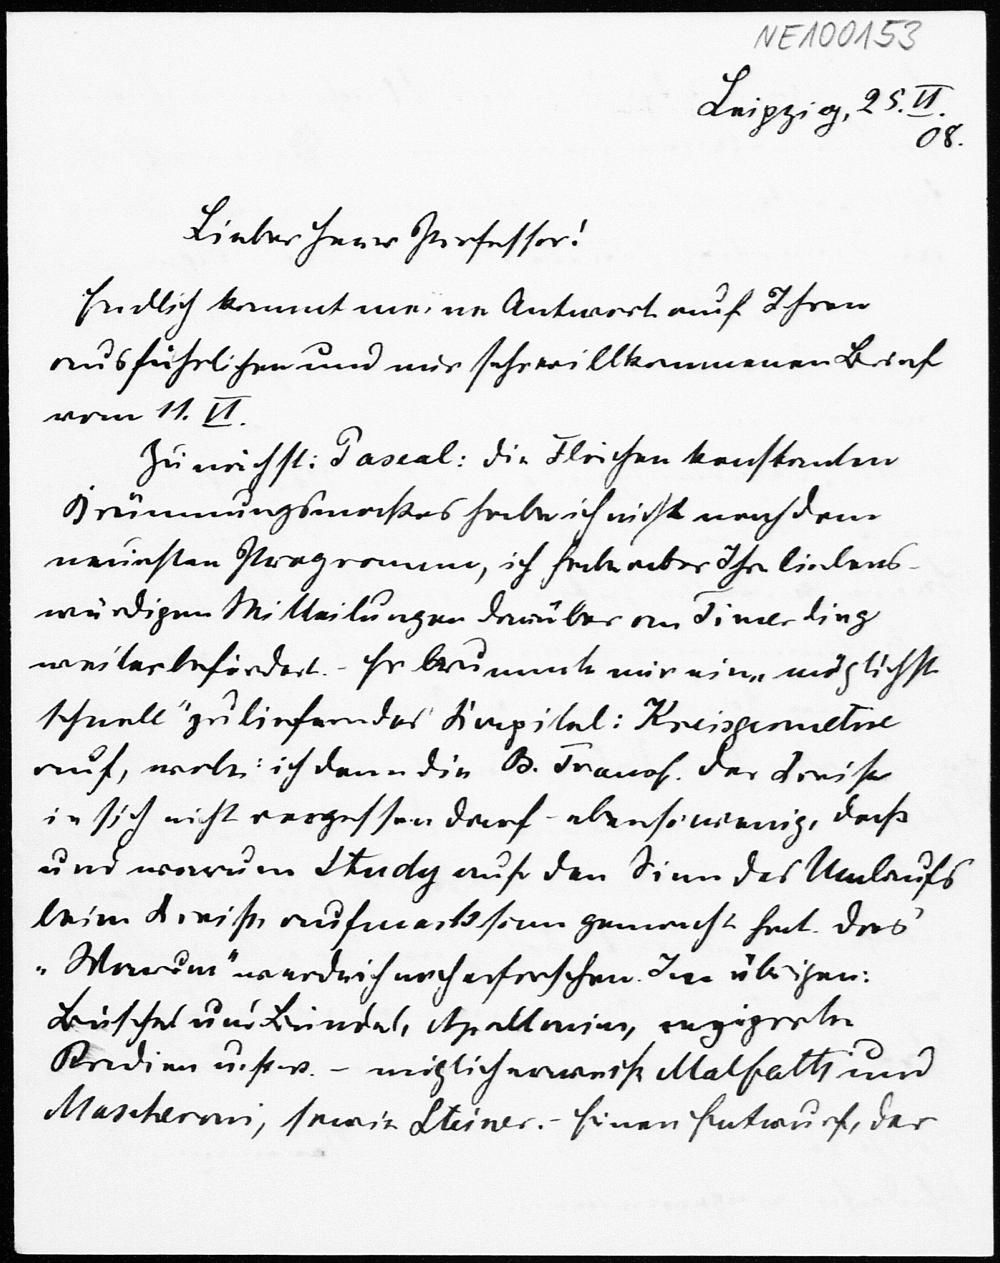 NE100153
Leipzig, 25. VI.
08.
Lieber Herr Professor!
Endlich kommt meine Antwort auf Ihren
ausführlichen und mir sehr willkommenen Brief
vom 11. VI.
Zunächst: Pascal: die Flächen konstanten
Krümmungsmaßes habe ich nicht nach dem
neuesten Programm, ich habe aber Ihre liebens-
würdigen Mitteilungen darüber an Timerding
weiterbefördert. - Er brummte mir ein "möglichst
schnell" zu lieferndes Kapitel: Kreisgeometrie
auf, wobei ich denn die B. Transf. der Kreise
in sich nicht vergessen darf - ebensowenig, daß
und warum Study auf den Sinn des Umlaufs
beim Kreise aufmerksam gemacht hat. Das
"Warum" werde ich noch erforschen. Im übrigen:
Büschel und Bündel, Apollonius, imaginäre
Radien u.s.w. - möglicherweise Malfatti und
Mascheroni, sowie Steiner. - Einen Entwurf, der